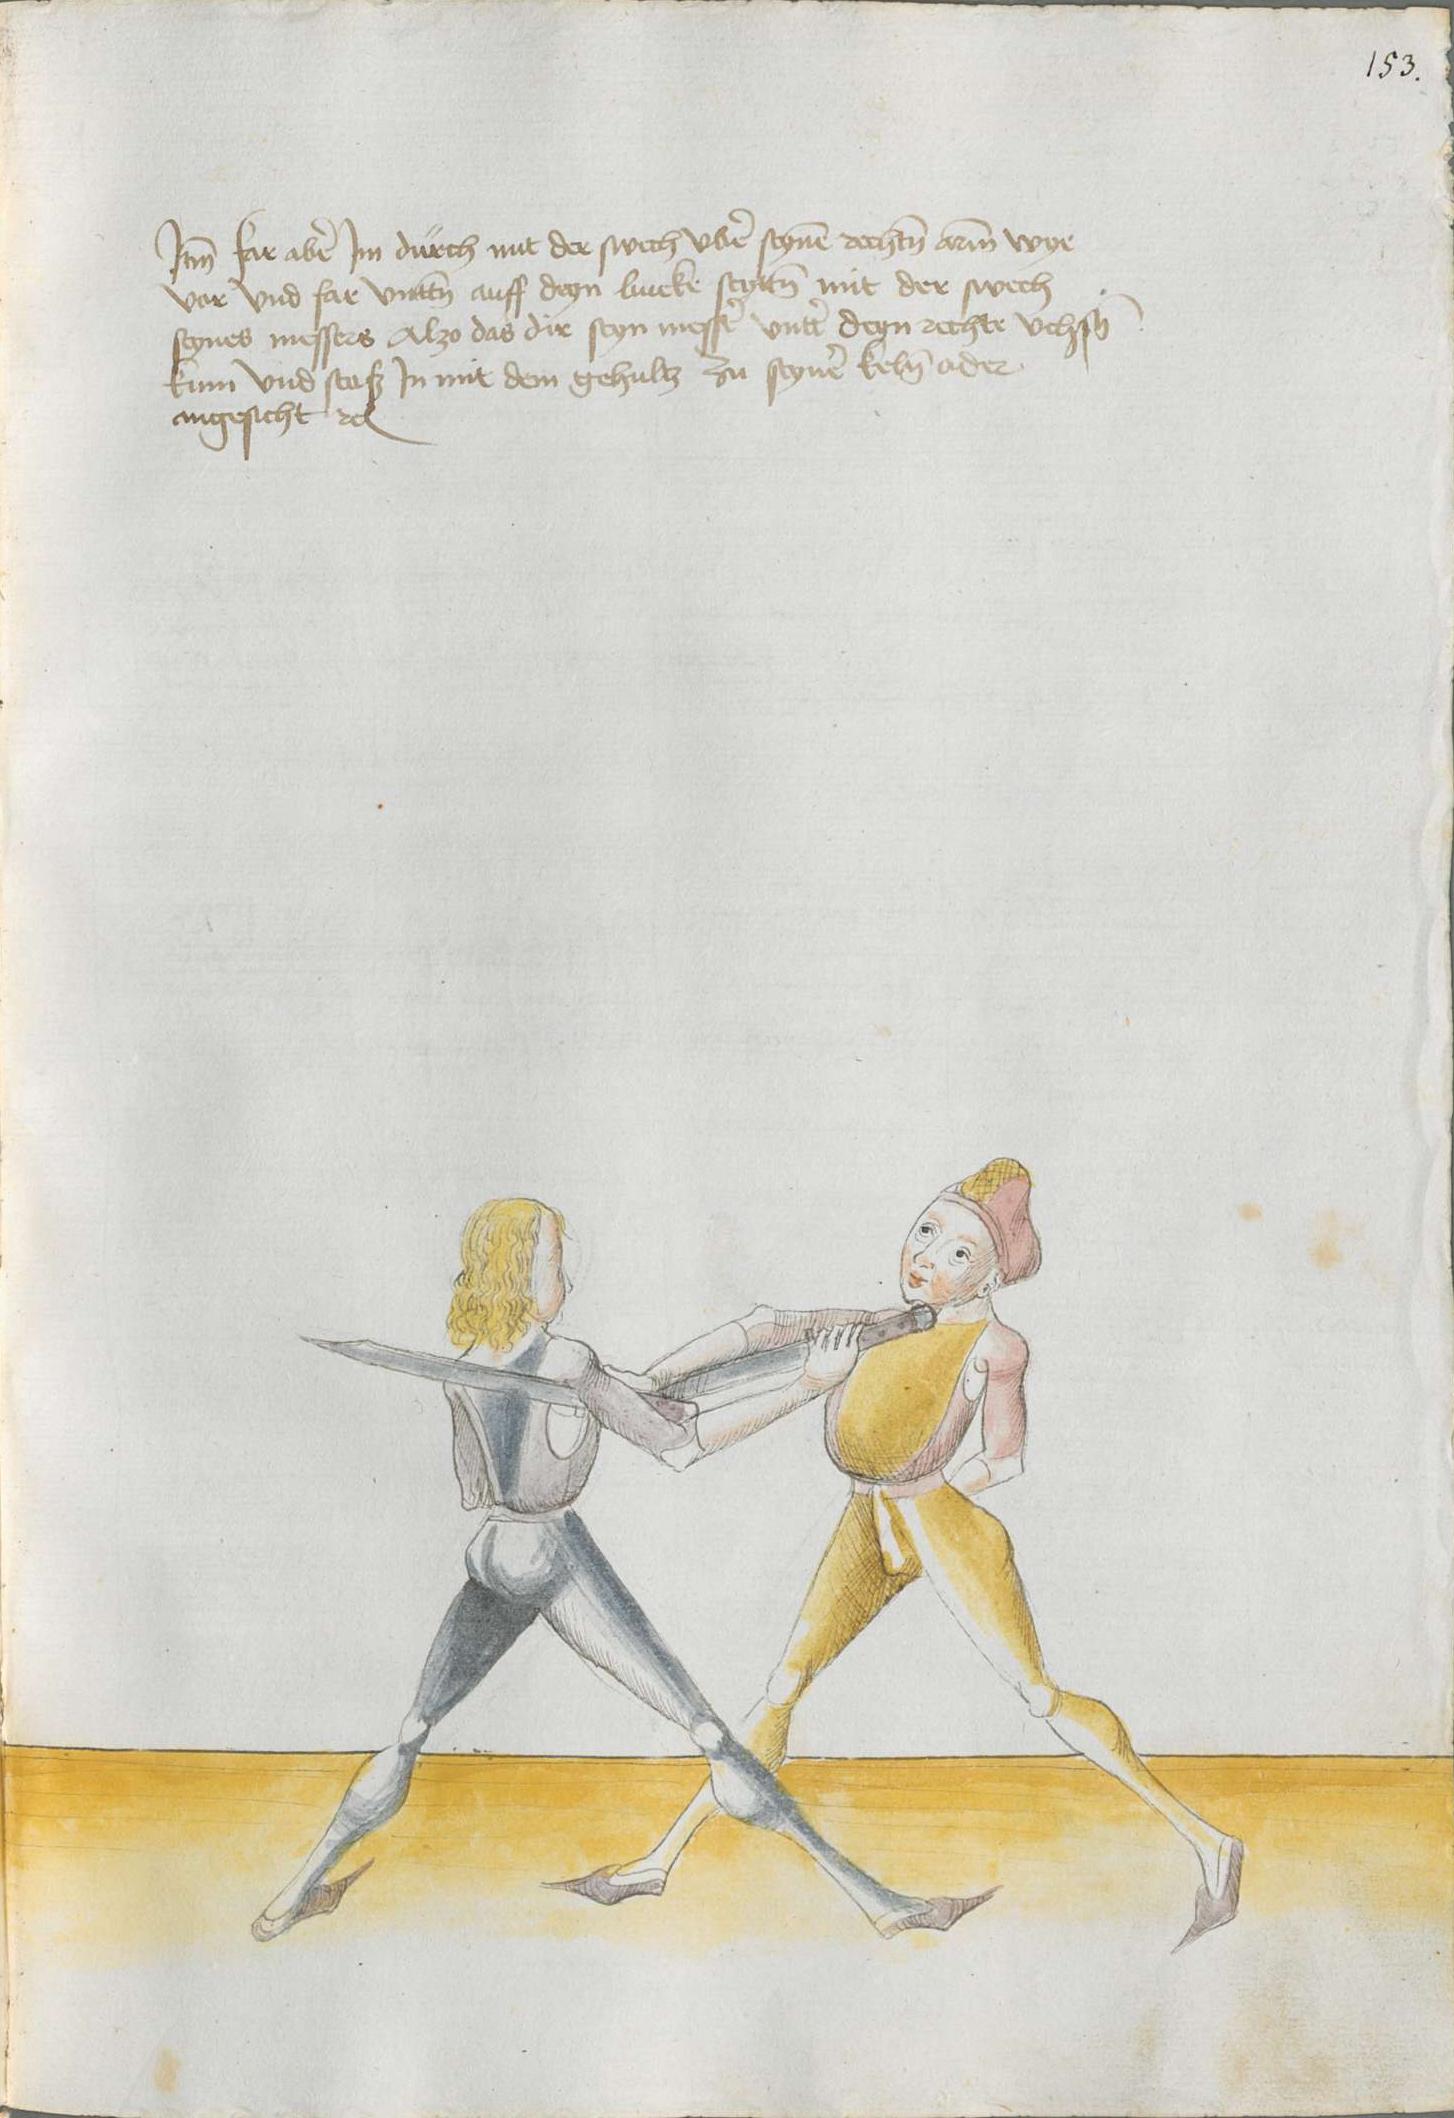 153.
Itm̄ far abē Im dürch mit der swech vbē seynē rechtn̄ arm̄ wye
vor vnd far vnttn̄ auff deyn lincke seyttn̄ mit der swech
seynes messers Alzo das dir seyn messē vnttē deyn rechte vchsn̄
kum vnd stoß In mit dem gehultz zu seynē keln̄ ader
angesicht rc